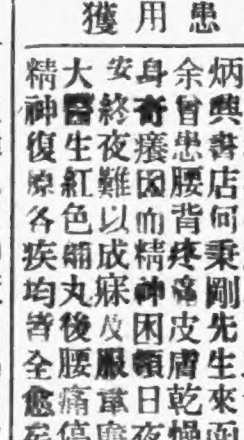 患用獲
炳興書店何秉剛先生來函
余曾患腰背疼痛皮膚乾燥
身奇癢因而精神困頓日夜
安終夜難以成寐及服韋廉
大醫生紅色補丸後腰痛停
精神復原各疾均皆全愈矣